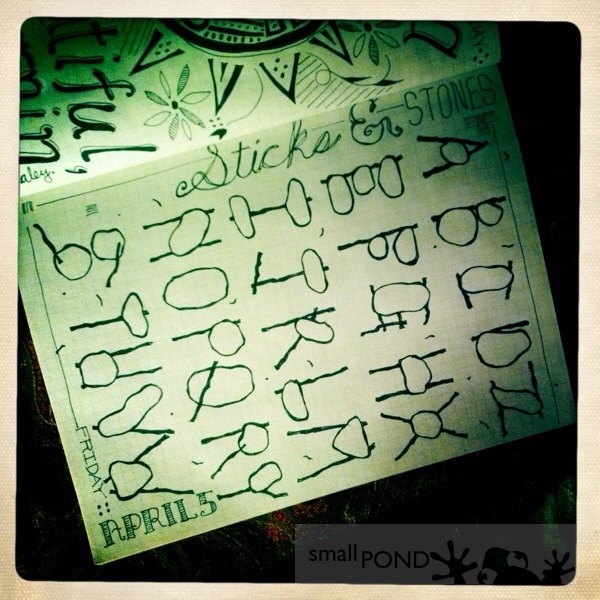 tiful,
aley.
Sticks & STONES
A B C D
E F G H
I J K L M
N O P Q R
S T U V W
X Y Z
FRIDAY::
APRIL 5
small POND